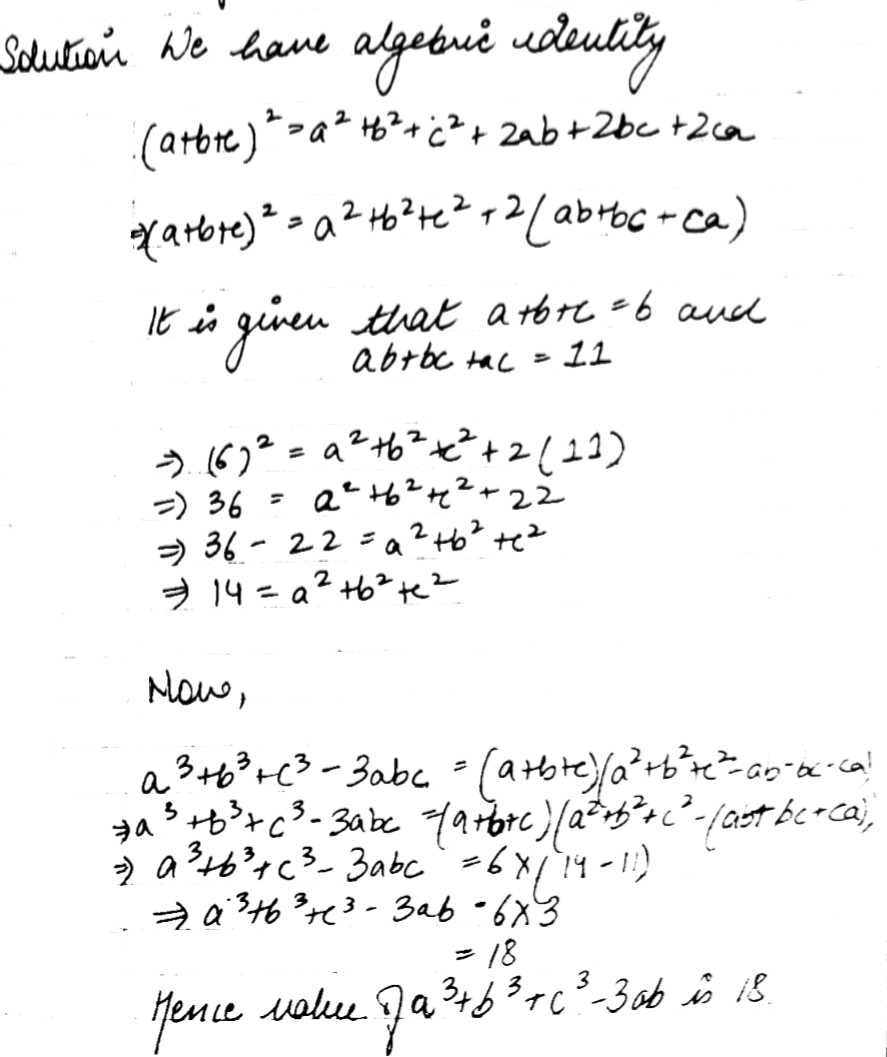 Solution We have algebric identity
(a+b+c)² = a² + b² + c² + 2ab + 2bc + 2ca
⇒(a+b+c)² = a² + b² + c² + 2(ab+bc+ca)
It is given that a+b+c = 6 and
ab+bc+ac = 11
⇒ (6)² = a² + b² + c² + 2(11)
⇒ 36 = a² + b² + c² + 22
⇒ 36 - 22 = a² + b² + c²
⇒ 14 = a² + b² + c²
Now,
a³ + b³ + c³ - 3abc = (a+b+c)(a² + b² + c² - ab - bc - ca)
⇒ a³ + b³ + c³ - 3abc = (a+b+c)(a² + b² + c² - (ab + bc + ca),
⇒ a³ + b³ + c³ - 3abc = 6 × (14 - 11)
⇒ a³ + b³ + c³ - 3ab = 6×3
= 18
Hence value of a³ + b³ + c³ - 3ab is 18.